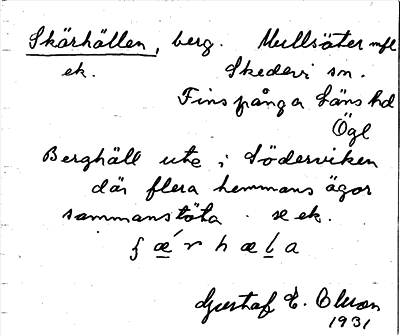 Skärhällen, berg. Mullsäter mfl
ek. Skedevi sn.
Finspånga Läns hd
Ögl
Berghäll ute i Söderviken
där flera hemmans ägor
sammanstöta. se ek.
ʃ ǽ r h æ l a
Gustaf E. Olsson
1931